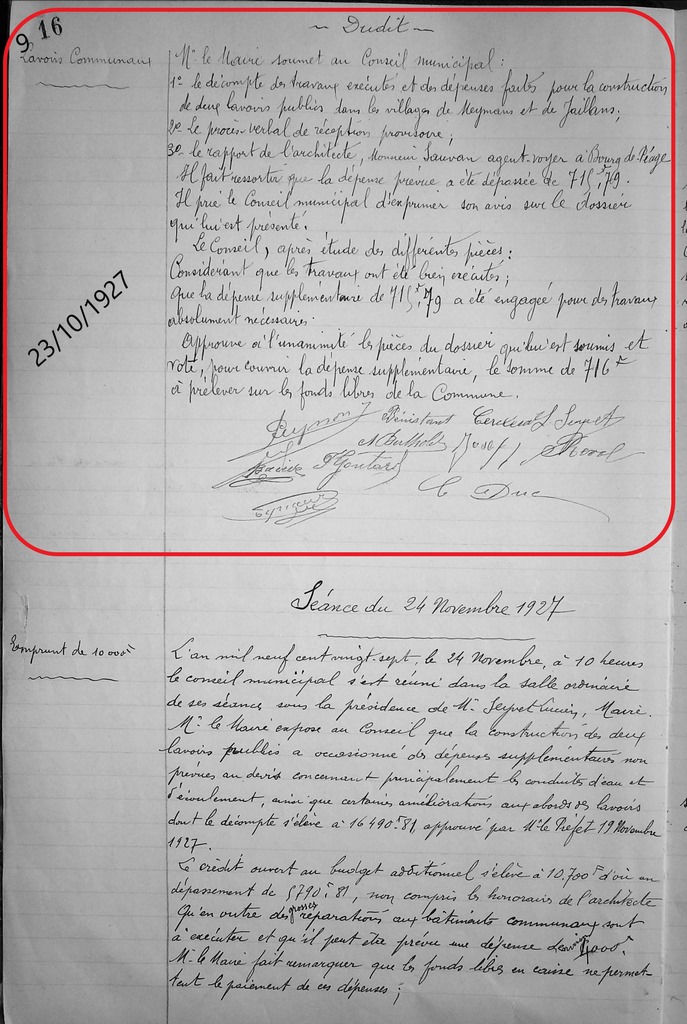 9 16
~ Dudit ~
Lavoirs Communaux
Mr le Maire soumet au Conseil municipal :
1o le décompte des travaux exécutés et des dépenses faites pour la construction
de deux lavoirs publics dans les villages de Meymans et de Jaillans;
2o Le procès-verbal de réception provisoire;
3o le rapport de l'architecte, Monsieur Sauvan agent-voyer à Bourg de Péage
Il fait ressortir que la dépense prévue a été dépassée de 715f,79.
Il prie le Conseil municipal d'exprimer son avis sur le dossier
qui lui est présenté.
Le Conseil, après étude des différentes pièces:
Considérant que les travaux ont été bien exécutés;
Que la dépense supplémentaire de 715f,79 a été engagée pour des travaux
absolument nécessaires.
Approuve à l'unanimité les pièces du dossier qui lui est soumis et
vote, pour couvrir la dépense supplémentaire, le somme de 716f
à prélever sur les fonds libres de la Commune.
23/10/1927
Bénistant Seyvet
A Berthold Revol
F Goutard
C Duc
Séance du 24 Novembre 1927
Emprunt de 10 000f
L'an mil neuf cent vingt-sept, le 24 Novembre, à 10 heures
le conseil municipal s'est réuni dans la salle ordinaire
de ses séances sous la présidence de Mr Seyvet Lucien, Maire.
Mr le Maire expose au Conseil que la construction des deux
lavoirs publics a occasionné des dépenses supplémentaires non
prévues au devis concernant principalement les conduites d'eau et
d'écoulement, ainsi que certaines améliorations aux abords des lavoirs
dont le décompte s'élève à 16490f81, approuvé par Mr le Préfet 19 Novembre
1927.
Le crédit ouvert au budget additionnel s'élève à 10.700f d'où un
dépassement de 5790f81, non compris les honoraires de l'architecte
Qu'en outre des grosses réparations aux bâtiments communaux sont
à exécuter et qu'il peut être prévu une dépense
Mr le Maire fait remarquer que les fonds libres en caisse ne permet-
tent le paiement de ces dépenses;